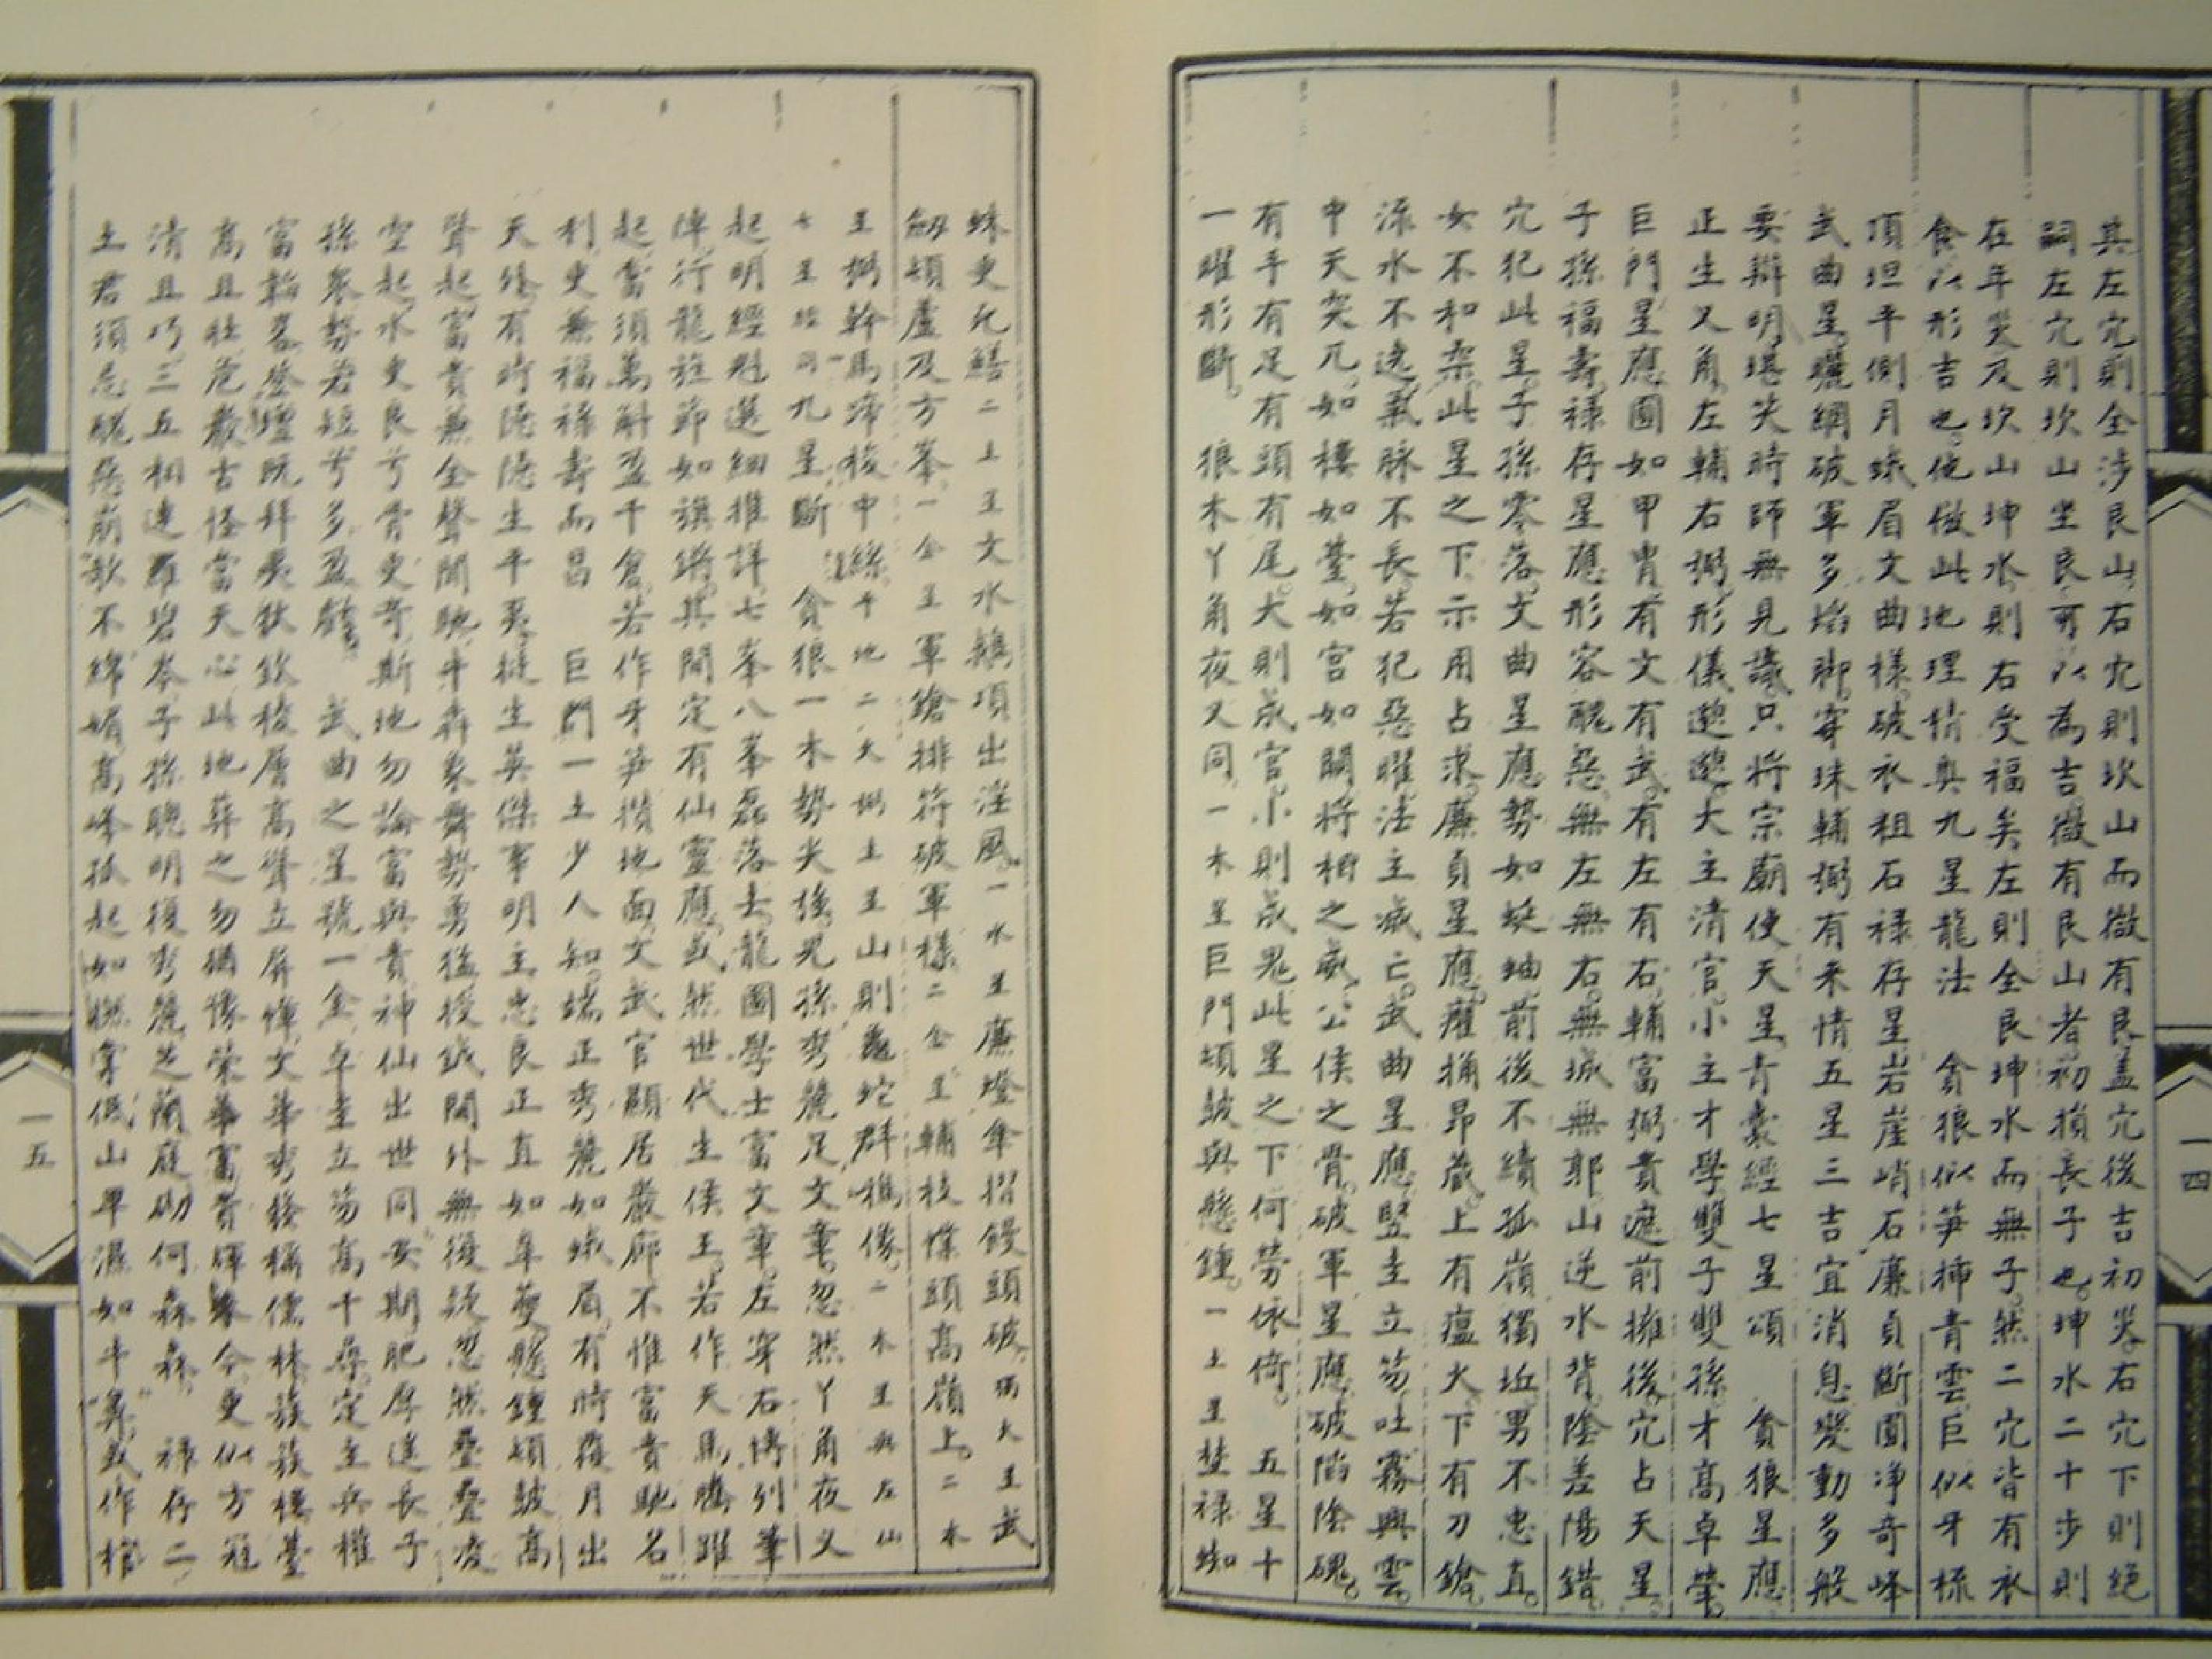 其左穴則全涉艮山右穴則坎山而微有艮盖穴後吉初災右穴下則絕
嗣左穴則坎山坐艮可以為吉微有艮山者初損長子也坤水二十步則
在年災及坎山坤水則右受福矣左則全艮坤水而無子然二穴皆有衣
食以形吉也他倣此地理精奥九星龍法 貪狼似笋揷青雲巨似牙梳
頂坦平側月蛾眉文曲樣破衣粗石禄存星岩崖峭石廉貞斷圓净奇峰
武曲星曬網破軍多焰脚穿珠輔弼有来情五星三吉宜消息變動多般
要辯明堪笑時師無見識只将宗廟使天星青囊經七星頌 貪狼星應
正生又角左輔右弼形儀遨遨大主清官小主才學雙子雙孫才髙卓犖
巨門星應圓如甲胄有文有武有左有右輔富弼貴遮前擁後穴占天星
子孫福壽禄存星應形容醜惡無左無右無城無郭山逆水背陰差陽錯
穴犯此星子孫零落文曲星應勢如蜓蚰前後不續孤嶺獨坵男不忠直
女不和柔此星之下示用占求廉貞星應癯㨂昂藏上有瘟火下有刀鎗
流水不遶氣脉不長若犯惡曜法主滅亡武曲星應竪圭立笏吐霧興雲
中天突兀如樓如臺如宮如闕将相之威公侯之骨破軍星應破陷陰磈
有手有足有頭有尾大則成官小則成鬼此星之下何劳依倚 五星十
一曜形斷 狼木丫角夜叉同一木星巨門頓皷與懸鍾一土星禄蜘
蛛更死鱔二土星文水鵝項出淫風一水星廉燈傘摺鐃頭破獨火星武
劔頓廬及方峯一金星軍鎗排符破軍樣二金星輔枝幞頭髙嶺上二木
星弼幹馬滂梭中絲平地二火似土星山則龜蛇群樵像二木星與左仙
七星 九星斷 貪狼一木勢尖強児孫秀麓足文章忽然丫角夜叉
起明經魁選細推詳七峯八峯磊落士龍圖學士富文章左穿右博列筆
陣行龍旌節如旗鎗其間定有仙靈應或然世代生侯王若作天馬騰躍
起當須萬斛盈千倉若作牙笋攢地面文武官顯居巖廊不惟富貴馳名
利更兼福禄壽而昌 巨門一土少人知端正秀麓如蛾眉有時覆月出
天外有時隐隐生平夷挺生英傑事明主忠良正直如皐夔懸鍾頓皷髙
聲起富貴兼全聲聞馳牛奔象舞勢勇猛授鉞閫外無後疑忽然疊疊凌
空起水更良兮骨更奇斯地勿論富與貴神仙出世同安期肥厚進長子
孫衆勢若短兮多盈虧 武曲之星號一金卓圭立笏髙千尋定主兵權
富韜畧登壇既拜夷狄欽梭層髙聳立屏幛文華秀發稱儒林簇簇樓臺
髙且壮危巖古怪當天心此地葬之勿猶豫榮華富貴輝 今更似方冠
清且巧三五相連羅碧岑子孫聰明復秀麓芝蘭庭砌何森森 禄存二
土君須忌醜惡崩欹不綿媚髙峰孤起如撫掌低山卑濕如斗箕或作棺
一四
一五